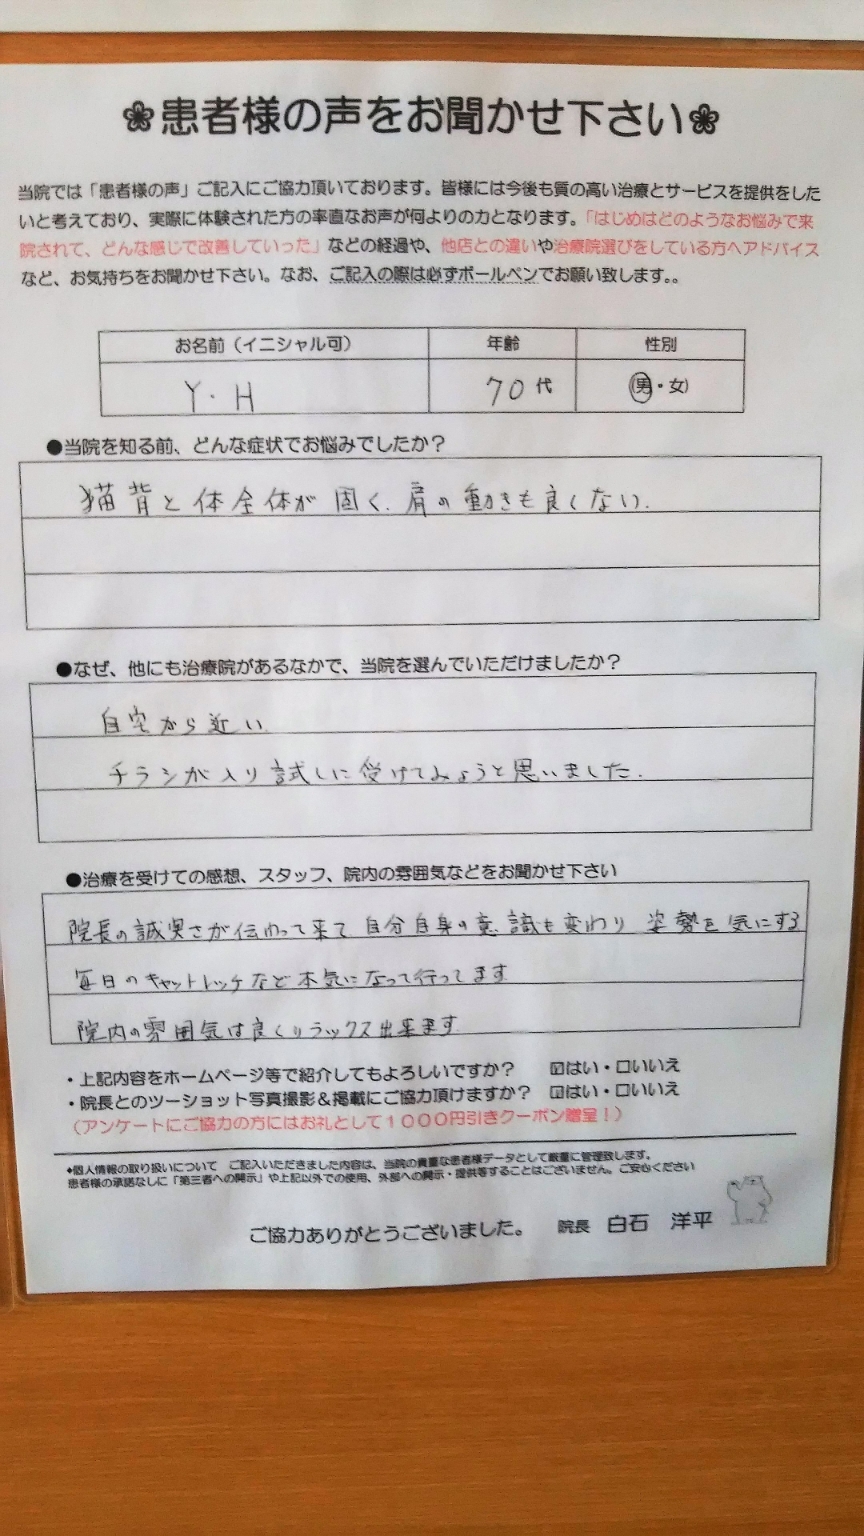 ❀患者様の声をお聞かせ下さい❀
当院では「患者様の声」ご記入にご協力頂いております。皆様には今後も質の高い治療とサービスを提供をした
いと考えており、実際に体験された方の率直なお声が何よりの力となります。「はじめはどのようなお悩みで来
院されて、どんな感じで改善していった」などの経過や、他店との違いや治療院選びをしている方へアドバイス
など、お気持ちをお聞かせ下さい。なお、ご記入の際は必ずボールペンでお願い致します。。
お名前(イニシャル可) 年齢 性別
Y.H 70代 (男・女)
●当院を知る前、どんな症状でお悩みでしたか?
猫背と体全体が固く、肩の動きも良くない.
●なぜ、他にも治療院があるなかで、当院を選んでいただけましたか?
自宅から近い
チラシが入り試しに受けてみょうと思いました.
●治療を受けての感想、スタッフ、院内の雰囲気などをお聞かせ下さい
院長の誠実さが伝わって来て 自分自身の意識も変わり 姿勢を気にする
毎日のキャットレッチなど本気になって行ってます
院内の雰囲気は良くリラックス出来ます
・上記内容をホームページ等で紹介してもよろしいですか? ☑はい・□いいえ
・院長とのツーショット写真撮影&掲載にご協力頂けますか? ☑はい・□いいえ
(アンケートにご協力の方にはお礼として1000円引きクーポン贈呈!)
◆個人情報の取り扱いについて ご記入いただきました内容は、当院の貴重な患者様データとして厳重に管理致します。
患者様の承諾なしに「第三者への開示」や上記以外での使用、外部への開示・提供等することはございません。ご安心ください
ご協力ありがとうございました。 院長 白石 洋平